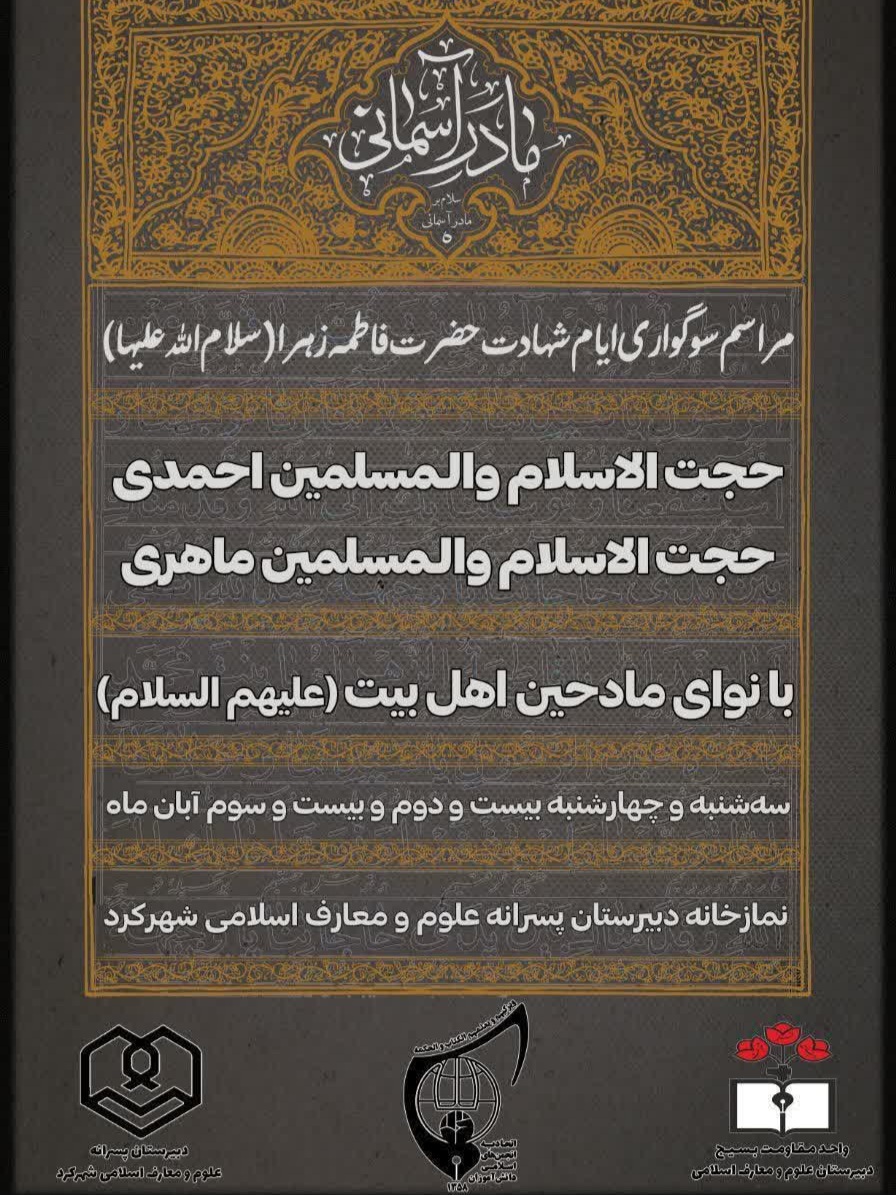 مادر آسمانی
سلام بر
مادر آسمانی
مراسم سوگواری ایام شهادت حضرت فاطمه زهرا (سلام الله علیها)
حجت الاسلام والمسلمین احمدی
حجت الاسلام والمسلمین ماهری
با نوای مادحین اهل بیت (علیهم السلام)
سه‌شنبه و چهارشنبه بیست و دوم و بیست و سوم آبان ماه
نمازخانه دبیرستان پسرانه علوم و معارف اسلامی شهرکرد
واحد مقاومت بسیج
دبیرستان علوم و معارف اسلامی
و یزکیهم و یعلمهم الکتاب و الحکمه
اتحادیه
انجمن‌های
اسلامی
دانش‌آموزان
۱۳۵۸
دبیرستان پسرانه
علوم و معارف اسلامی شهرکرد